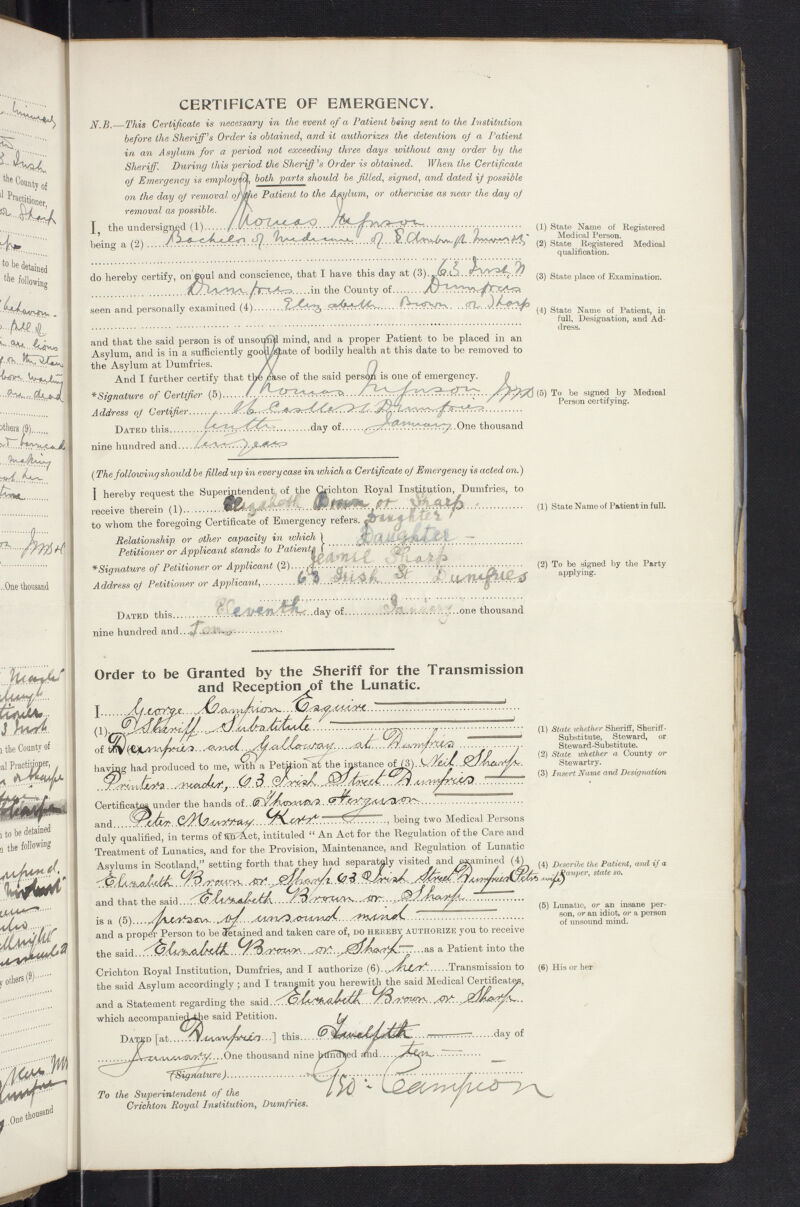 CERTIFICATE OF EMERGENCY.
N.B.—This Certificate is necessary in the event of a Patient being sent to the Institution
before the Sheriff's Order is obtained, and it authorizes the detention of a Patient
in an Asylum for a period not exceeding three days without any order by the
Sheriff. During this period the Sheriff's Order is obtained. When the Certificate
of Emergency is employed, both parts should be filled, signed, and dated if possible
on the day of removal of the Patient to the Asylum, or otherwise as near the day of
removal as possible.
I, the undersigned (1) Thomas Ferguson
being a (2) Bachelor of Medicine of Edinburgh University
do hereby certify, on soul and conscience, that I have this day at (3) 63 Irish St
Dumfries in the County of Dumfries
seen and personally examined (4) Elizabeth Brown or Sharp
and that the said person is of unsound mind, and a proper Patient to be placed in an
Asylum, and is in a sufficiently good state of bodily health at this date to be removed to
the Asylum at Dumfries.
And I further certify that the case of the said person is one of emergency.
*Signature of Certifier (5) Thomas Ferguson
Address of Certifier Castle St Dumfries
DATED this day of January One thousand
nine hundred and ten years
(The following should be filled up in every case in which a Certificate of Emergency is acted on.)
I hereby request the Superintendent of the Crichton Royal Institution, Dumfries, to
receive therein (1) Elizabeth Brown or Sharp
to whom the foregoing Certificate of Emergency refers. Daughter
Relationship or other capacity in which } Daughter
Petitioner or Applicant stands to Patient
*Signature of Petitioner or Applicant (2) Jeanie Sharp
Address of Petitioner or Applicant, 63 Irish St Dumfries
DATED this Eleventh day of January one thousand
nine hundred and Ten
Order to be Granted by the Sheriff for the Transmission
and Reception of the Lunatic.
I George Campion Esquire
(1) Sheriff Substitute
of Dumfries and Galloway at Dumfries
having had produced to me, with a Petition at the instance of (3) Neil Sharp
Printers reader, 63 Irish Street Dumfries
Certificates under the hands of Thomas Ferguson
and Peter Murray Kerr, being two Medical Persons
duly qualified, in terms of an Act, intituled "An Act for the Regulation of the Care and
Treatment of Lunatics, and for the Provision, Maintenance, and Regulation of Lunatic
Asylums in Scotland," setting forth that they had separately visited and examined (4)
Elizabeth Brown or Sharp 63 Irish Street Dumfries
and that the said Elizabeth Brown or Sharp
is a (5) person of unsound mind
and a proper Person to be detained and taken care of, DO HEREBY AUTHORIZE you to receive
the said Elizabeth Brown or Sharp as a Patient into the
Crichton Royal Institution, Dumfries, and I authorize (6) her Transmission to
the said Asylum accordingly; and I transmit you herewith the said Medical Certificates,
and a Statement regarding the said Elizabeth Brown or Sharp
which accompanied the said Petition.
DATED [at Dumfries] this Twelfth day of
January One thousand nine hundred and ten
(Signature) Geo: Campion
To the Superintendent of the
Crichton Royal Institution, Dumfries.
(1) State Name of Registered
Medical Person.
(2) State Registered Medical
qualification.
(3) State place of Examination.
(4) State Name of Patient, in
full, Designation, and Ad-
dress.
(5) To be signed by Medical
Person certifying.
(1) State Name of Patient in full.
(2) To be signed by the Party
applying.
(1) State whether Sheriff, Sheriff-
Substitute, Steward, or
Steward-Substitute.
(2) State whether a County or
Stewartry.
(3) Insert Name and Designation
(4) Describe the Patient, and if a
Pauper, state so.
(5) Lunatic, or an insane per-
son, or an idiot, or a person
of unsound mind.
(6) His or her
the County of
Practitioner,
to be detained
the following
others (9)
One thousand
the County of
Practitioner,
to be detained
the following
others (9)
One thousand